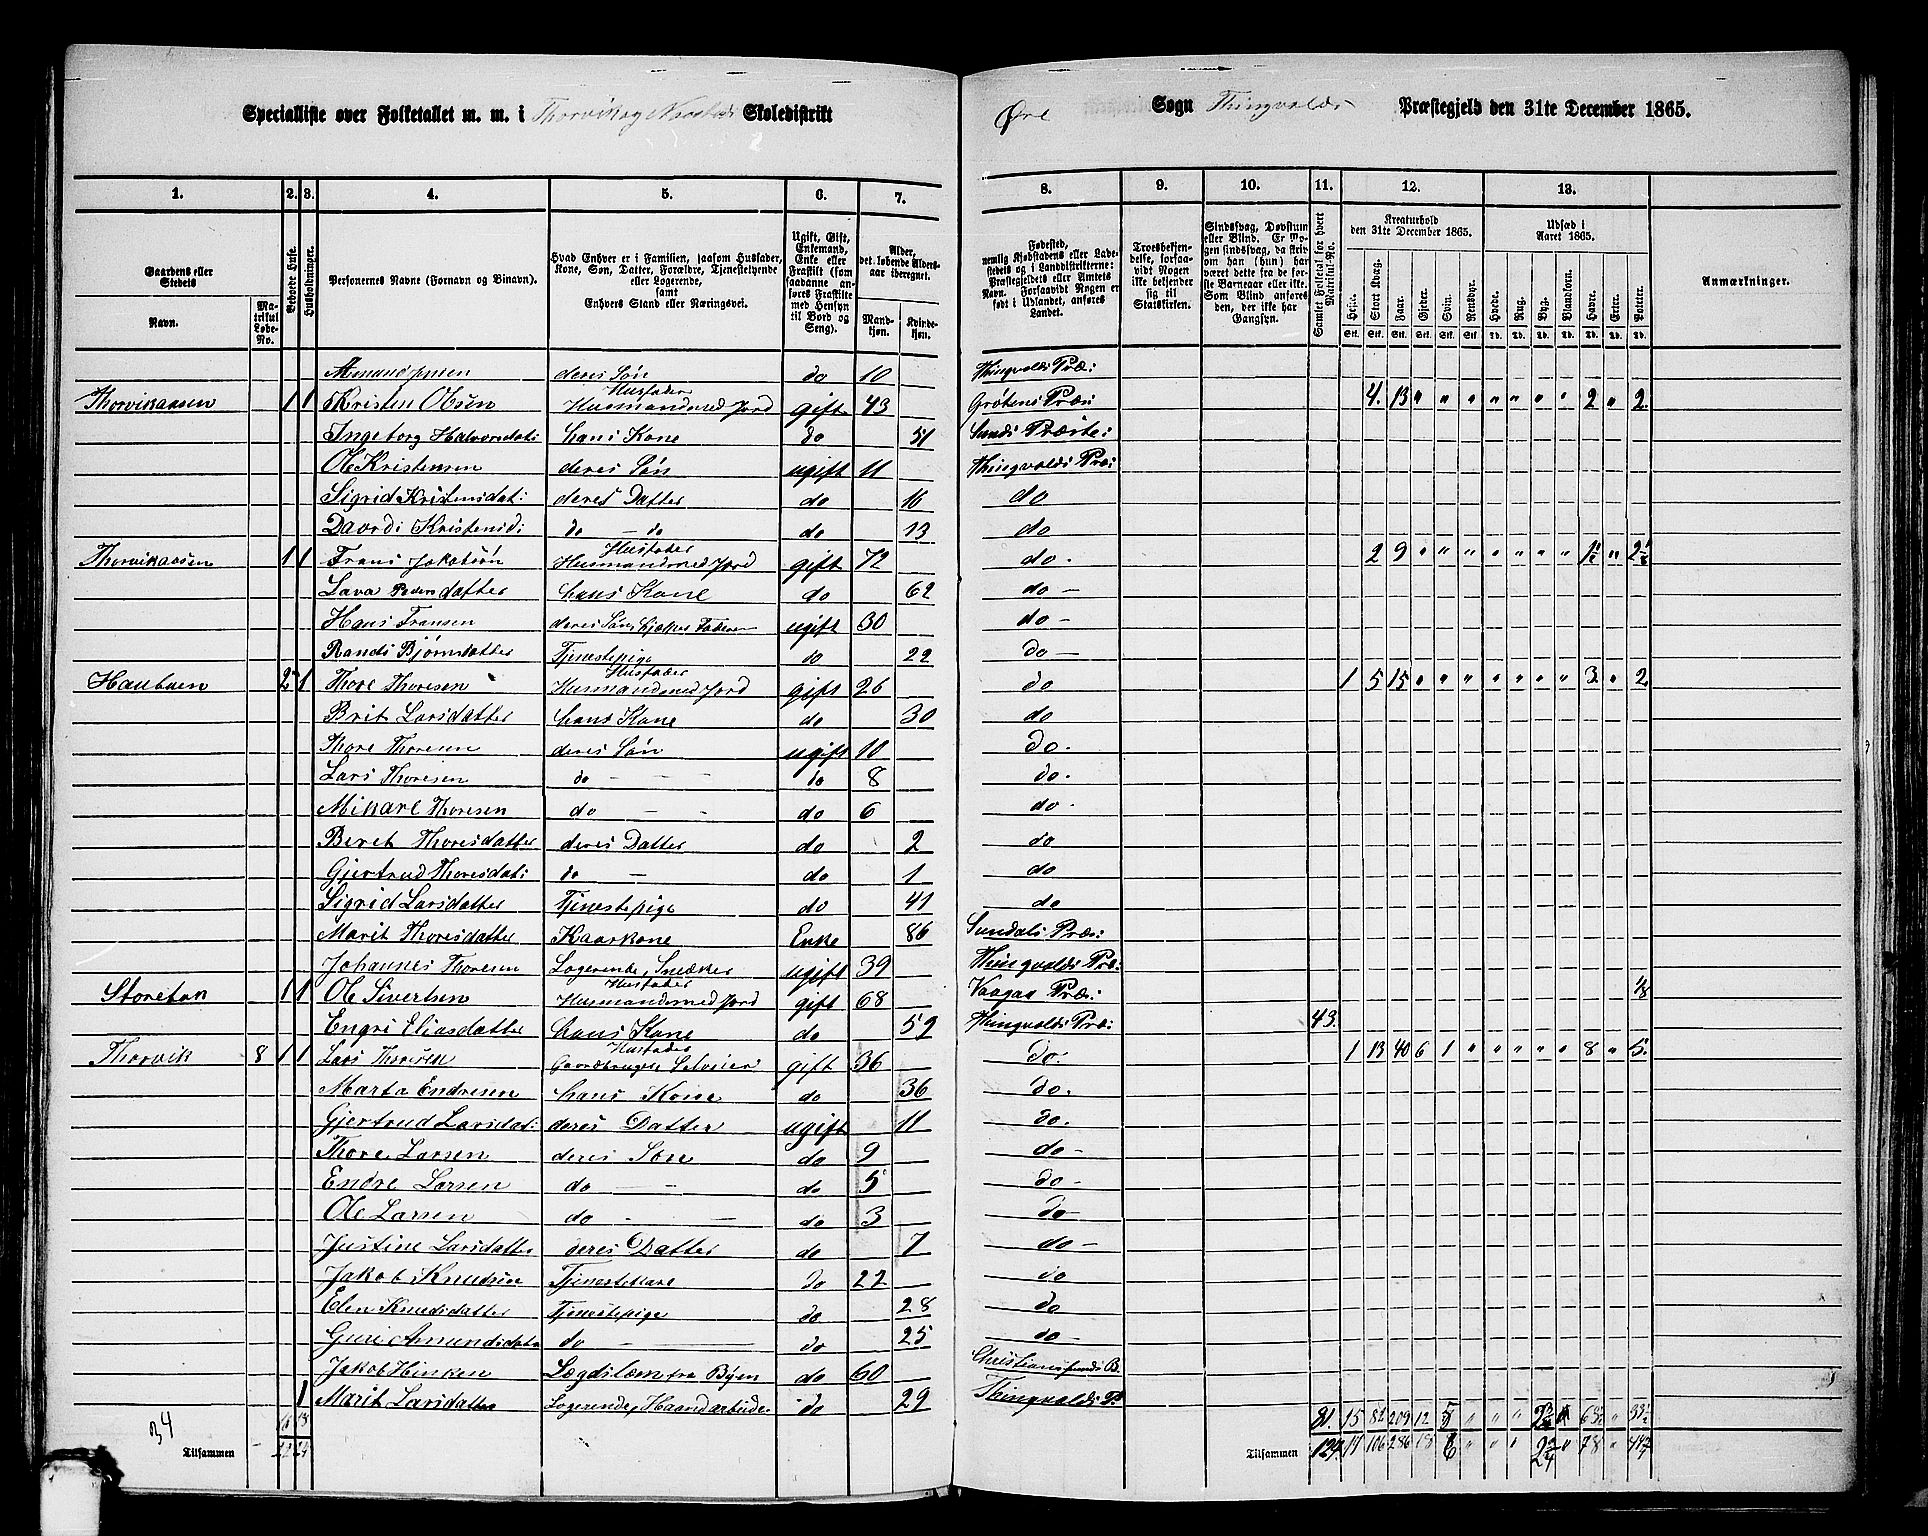 Specialliste over Folketallet m. m. i Thorvik og Skoledistrikt Øre Sogn Thingvolds Præstegjeld den 31te December 1865.
1. 2. 3. 4. 5. 6. 7. 8. 9. 10. 11. 12. 13.
Gaardens eller Stedets Navn. Matrikul Løbe-No. Beboede Huse. Husholdninger. Personernes Navne (Fornavn og Binavn). Hvad Enhver er i Familien, saasom Husfader, Kone, Søn, Datter, Forældre, Tjenestetyende eller Logerende, samt Enhvers Stand eller Næringsvei. Ugift, Gift, Enkemand, Enke eller Fraskilt (som saadanne anføres Fraskilte med Hensyn til Bord og Seng). Alder, det løbende Aldersaar iberegnet. Mandkjøn. Kvindekjøn.
Fødested, nemlig Kjøbstadens eller Ladestedets og i Landdistrikterne: Præstegjeldets eller Amtets Navn. Forsaavidt Nogen er født i Udlandet, anføres Landet. Troesbekjendelse, forsaavidt Nogen ikke bekjender sig til Statskirken. Sindssvag, Døvstum eller Blind. Er Nogen sindssvag, da skrives om han (hun) har været dette fra de første Barneaar eller ikke. Som Blind anføres den, der ikke har Gangsyn. Samlet Folketal for hvert Matrikul-No. Kreaturhold den 31te December 1865. Udsæd i Aaret 1865. Anmærkninger.
Heste. Stort Kvæg. Faar. Gjeder. Svin. Rensdyr. Hvede. Rug. Byg. Blandkorn. Havre. Erter. Poteter.
Stk. Stk. Stk. Stk. Stk. Stk. Td. Td. Td. Td. Td. Td. Td.
deres Søn do 10 Thingvolds Præ:
Thorvikaasen 1 1 Kristen Olsen Husfader Husmand med Jord gift 43 Præ: 4. 13 " " " " " " " 2 " 2
Ingeborg Halvorsdat: hans Kone do 51 Præste:
Ole Kristensen deres Søn ugift 11 Thingvolds Præ:
Sigrid Kristensdat: deres Datter do 16 do
Kristensd: do — do do 13 do
Thorvikaasen 1 1 Frans Jakobsøn Husfader Husmand med Jord gift 72 do. 2 9 " " " " " " " 1½ " 2½
Pedersdatter hans Kone do 62 do —
Hans Fransen deres Søn, hjælper Faderen ugift 30 do —
Randi Bjørnsdatter Tjenestepige do 22 do —
Haubuen 2 1 Thore Thoresen Husfader Husmand med Jord gift 26 do 1 5 15 " " " " " " " 3 " 2
Brit Larsdatter hans Kone do 30 do
Thore Thoresen deres Søn ugift 10 do.
Lars Thoresen do — — do 8 do.
Mikael Thoresen do — — do 6 do.
Beret Thoresdatter deres Datter do 2 do
Gjertrud Thoresdat: do — do 1 do
Sigrid Larsdatter Tjenestepige do 41 do
Marit Thoresdatter Kaarkone Enke 86 Sundals Præ:
Johannes Thoresen Logerende, Snedker ugift 39 Thingvolds Præ:
1 1 Ole Sivertsen Husfader Husmand med Jord gift 68 Præ: 1/8
Engri Eliasdatter hans Kone do 59 Thingvolds Præ: 43.
Thorvik 8 1 1 Lars Thoresen Husfader Gaardbruger, Selveier gift 36 do. 1 13 40 6 1 " " " " " 8 " 5.
Marta Endresen hans Kone do 36 do.
Gjertrud Larsdat: deres Datter ugift 11 do.
Thore Larsen deres Søn do 9 do —
Endre Larsen do — — do 5 do —
Ole Larsen do — — do 3 do —
Justine Larsdatter deres Datter do 7 do —
Jakob Knudsen Tjenestekarl do 22 do
Elen Knudsdatter Tjenestepige do 28 do
Guri Amundsdatte do — do 25 do —
Jakob Hinken Lægdslem fra Byen do 60 Christiansunds B.
1 Marit Larsdatter Logerende, Haandarbeide do 29 Thingvolds P.
81. 15 82 209 12 5
34
Tilsammen Tilsammen 124 17 106 286 18 6 " " " 78 "